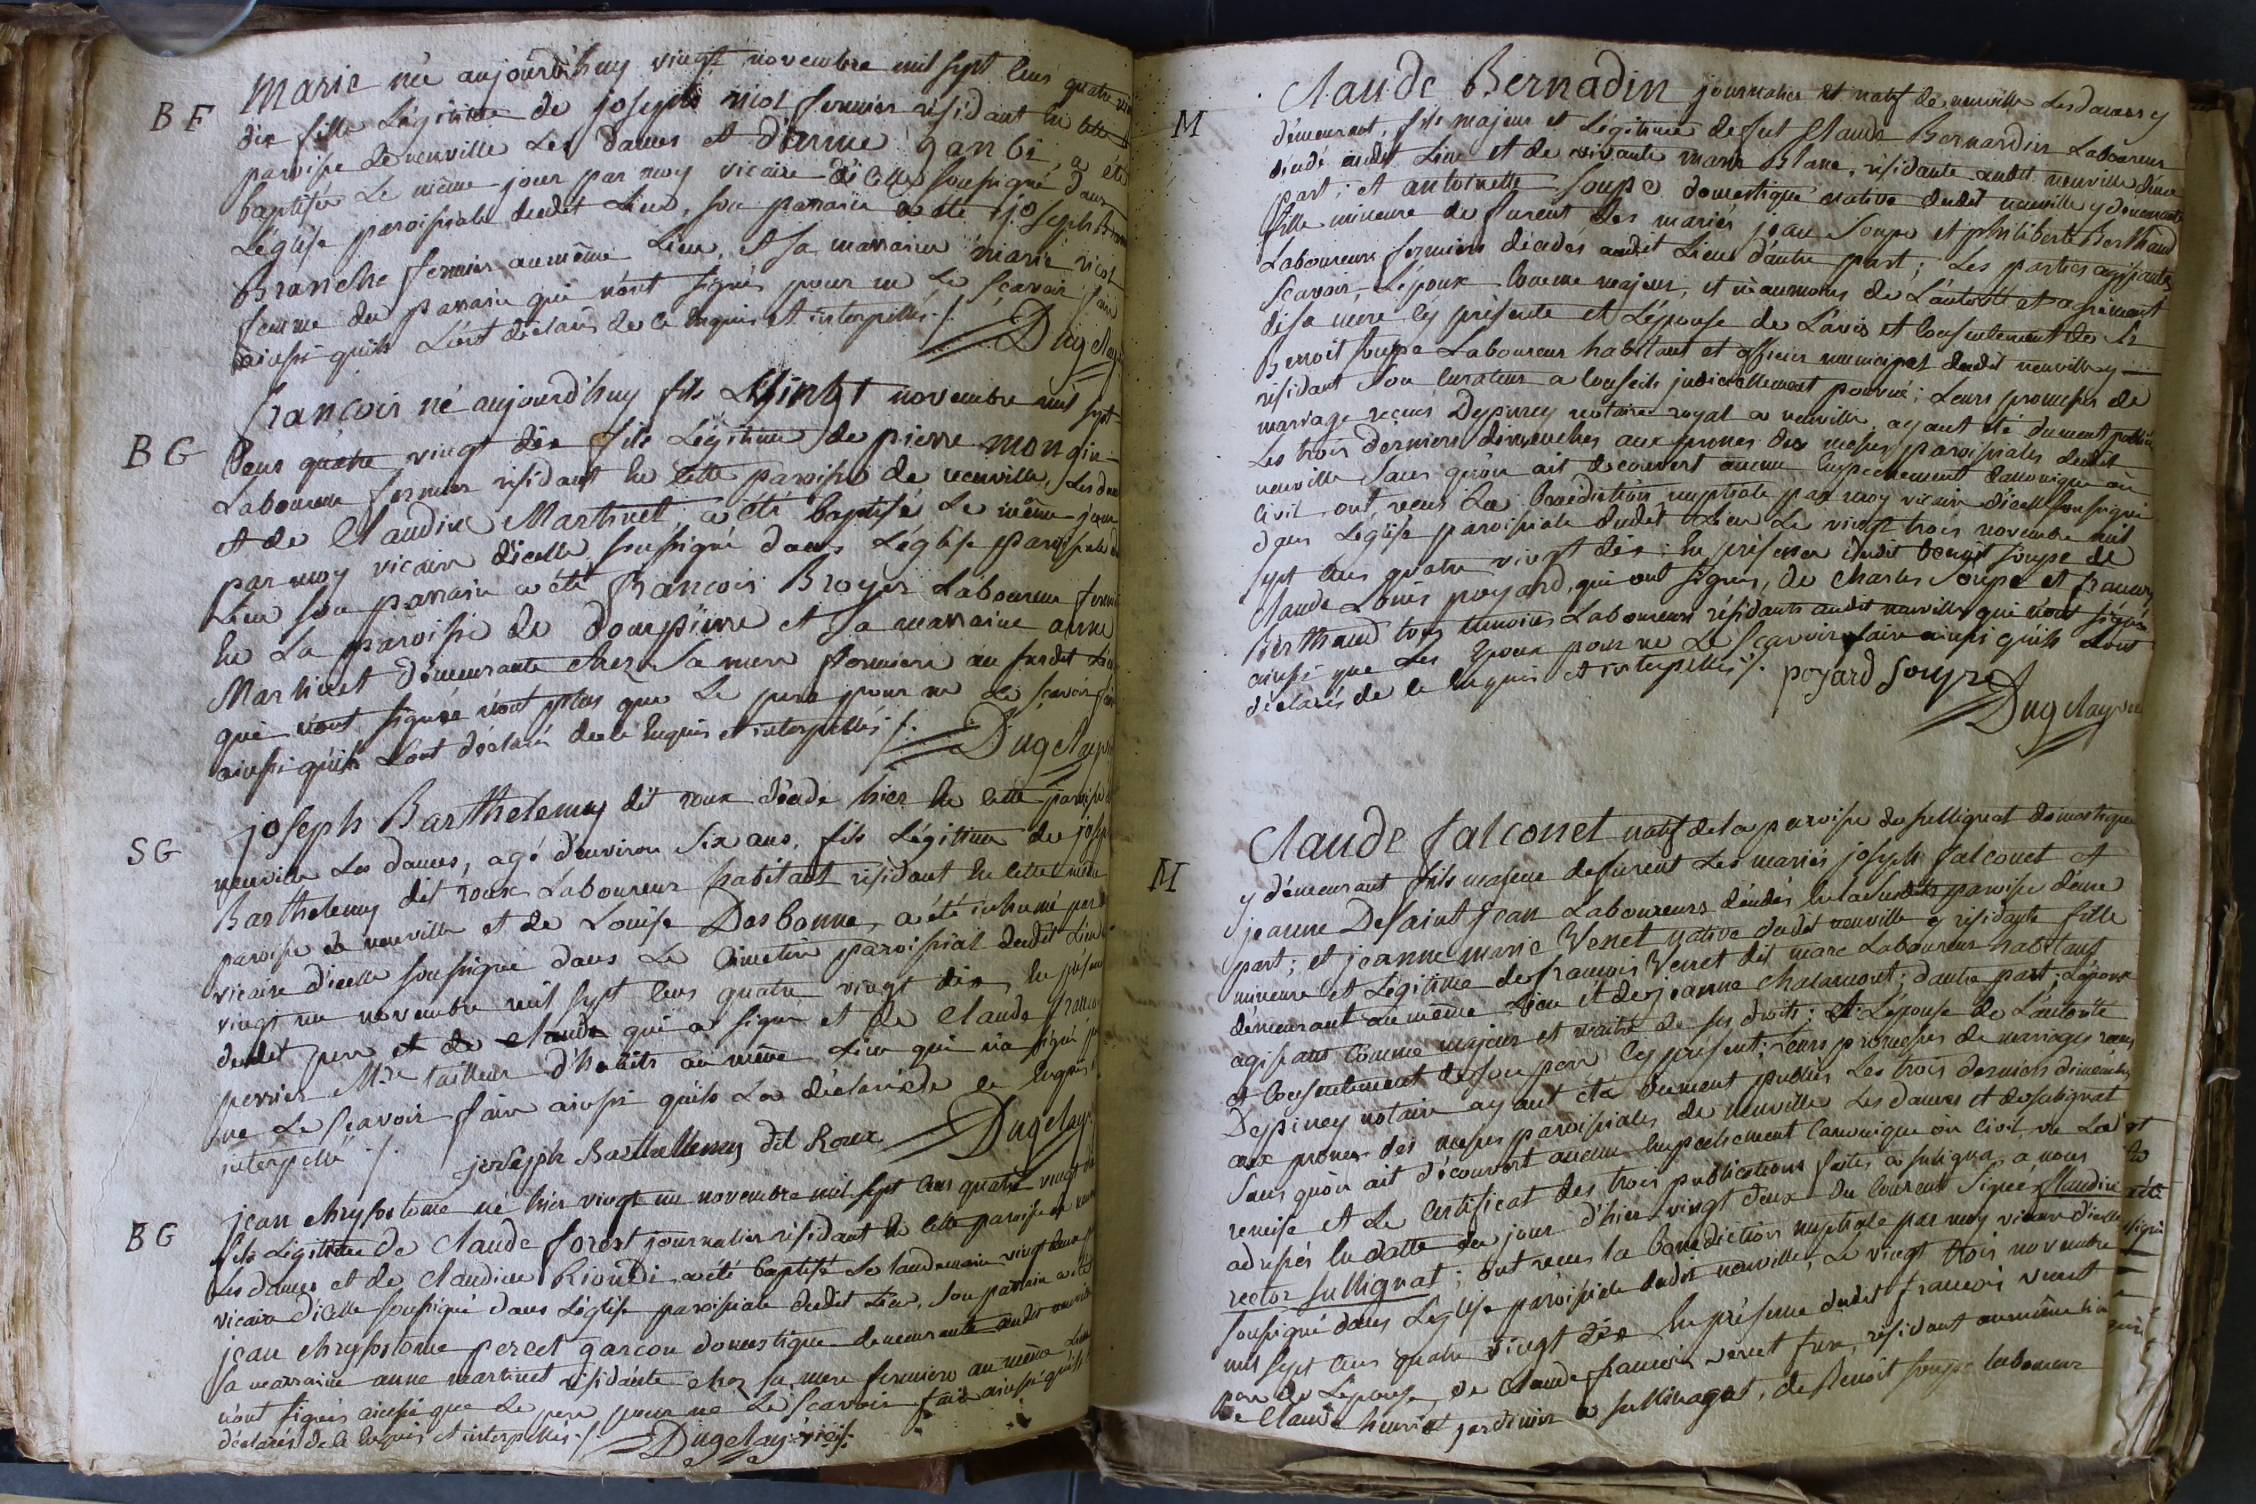 BF
Marie née aujourd'huy vingt novembre mil sept cens quatre vin
dix fille Légitime de joseph nicot fermier résidant en cette
paroisse de neuville Les dames et d'anne ganbi, a été
baptisée Le même jour par moy vicaire d'icelle soussigné dans
L'église paroissiale dudit Lieu, son parrain a été joseph
Branche fermier au même Lieu, et sa marraine marie nicot
femme du parrain qui n'ont signés pour ne Le scavoir faire
ainsi qu'ils L'ont déclarés de ce enquis et interpellés ./.
Dugelay
BG
françois né aujourd'huy fils vingt novembre mil sept
cens quatre vingt dix fils Légitime de pierre mongin
Laboureur fermier résidant en cette paroisse de neuville, Les dam
et de Claudine Martinet a été baptisé Le même jour
par moy vicaire d'icelle soussigné dans L'église paroissiale du
Lieu son parrain a été francois Broyer Laboureur fermier
en La paroisse de dompierre et sa marraine anne
Martinet demeurante chez sa mere fermiere au susdit Lieu
qui n'ont signés non plus que Le pere pour ne Le scavoir faire
ainsi qu'ils L'ont déclarés de ce enquis et interpellés ./.
Dugelay
SG
joseph Barthelemy dit roux décédé hier en cette paroisse de
neuville Les dames, agé d'environ six ans, fils Légitime de joseph
Barthelemy dit roux Laboureur habitant résidant en cette même
paroisse de neuville et de Louise Desbonne, a été inhumé par
vicaire d'icelle soussigné dans Le Cimetiere paroissial dudit Lieu
vingt un novembre mil sept cens quatre vingt dix, en présence
dudit pere et de claude qui a signé et de claude francois
perrier M.re tailleur d'habits au même Lieu qui n'a signé pour
ne Le scavoir faire ainsi qu'ils La déclaré de ce enquis
interpellé ./.
joseph Barthellemy dit Roux
Dugelay
BG
jean chrysostome né hier vingt un novembre mil sept cens quatre vingt dix
fils Légitime de Claude forest journalier résidant en cette paroisse de neuv
Les dames et de Claudine Riondi a été baptisé Le landemain vingt deux par
vicaire d'icelle soussigné dans L'église paroissiale dudit Lieu, son parrain a été
jean chrysostome percet garcon domestique demeurante audit neuville
sa marraine anne martinet résidante chez sa mere fermiere au même Lieu
n'ont signés ainsi que Le pere pour ne Le scavoir fair ainsi qu'ils
déclarés de ce enquis et interpellés ./. Dugelay vic.
M
Claude Bernadin journalier et natif de neuville Les dames y
demeurant, fils majeur et Légitime de fut Claude Bernardin Laboureur
décédé audit Lieu et de vivante marie Blanc, résidante audit neuville d'une
part; et antoinette soupe domestique native dudit neuville y demeurante
fille mineure de furent Les mariés jean Soupe et philiberte Berthaud
Laboureurs fermiers décédés audit Lieu d'autre part; Les parties agissantes
scavoir, L'époux comme majeur, et néanmoins de L'autorité et agrément
de sa mere icy présente et L'épouse de L'avis et consentement de Sr
Benoit soupe Laboureur habitant et officier municipal dudit neuville y
résidant son curateur a conseils judiciellement pourvue; Leurs promesses de
mariage recues Depiney notaire royal a neuville ayant été dument publiées
Les trois derniers dimenches aux prones des messes paroissiales dudit
neuville sans qu'on ait decouvert aucun empechement canonique ou
civil ont recus La Benediction nuptiale par moy vicaire d'icelle soussigné
dans L'église paroissiale dudit Lieu Le vingt trois novembre mil
sept cens quatre vingt dix; en présence dudit benoit soupe de
Claude Louis poyard, qui ont signés, de charles Soupe et francois
Berthaud tous temoins Laboureurs résidants audit neuville qui n'ont signés
ainsi que Les Epoux pour ne Le scavoir faire ainsi qu'ils L'ont
déclarés de ce enquis et interpellés ./. poyard Soupe
Dugelay vic
M
Claude falconet natif de la paroisse de sullignat domestique
y demeurant fils majeur de furent Les mariés joseph falconet et
jeanne Desaint jean Laboureurs décédés en la susditte paroisse d'une
part; et jeanne marie Venet native dudit neuville y résidante fille
mineure et Légitime de francois Venet dit marc Laboureur habitant
demeurant au même Lieu et de jeanne chalamont; d'autre part; L'époux
agissant comme majeur et maitre de ses droits; et L'épouse de L'autorité
et consentement de son pere icy présent; Leurs promesses de mariage recues
Depiney notaire ayant été dument publiés Les trois derniers dimenches
aux prones des messes paroissiales de neuville Les dames et de sulignat
sans qu'on ait découvert aucun empechement canonique ou civil, vu La
remise et Le certificat des trois publications faites a sulignat, a nous
adressés en datte du jour d'hier vingt deux du courant signée Claudin
rector sullignat; ont recus la benediction nuptiale par moy vicaire d'icelle
soussigné dans L'église paroissiale dudit neuville, Le vingt trois novembre
mil sept cens quatre vingt dix en présence dudit francois venet
pere de L'épouse, de Claude francois venet frere, résidant au même lieu
de Claude henriot jardinier a sullignat, de Benoit soupe laboureur